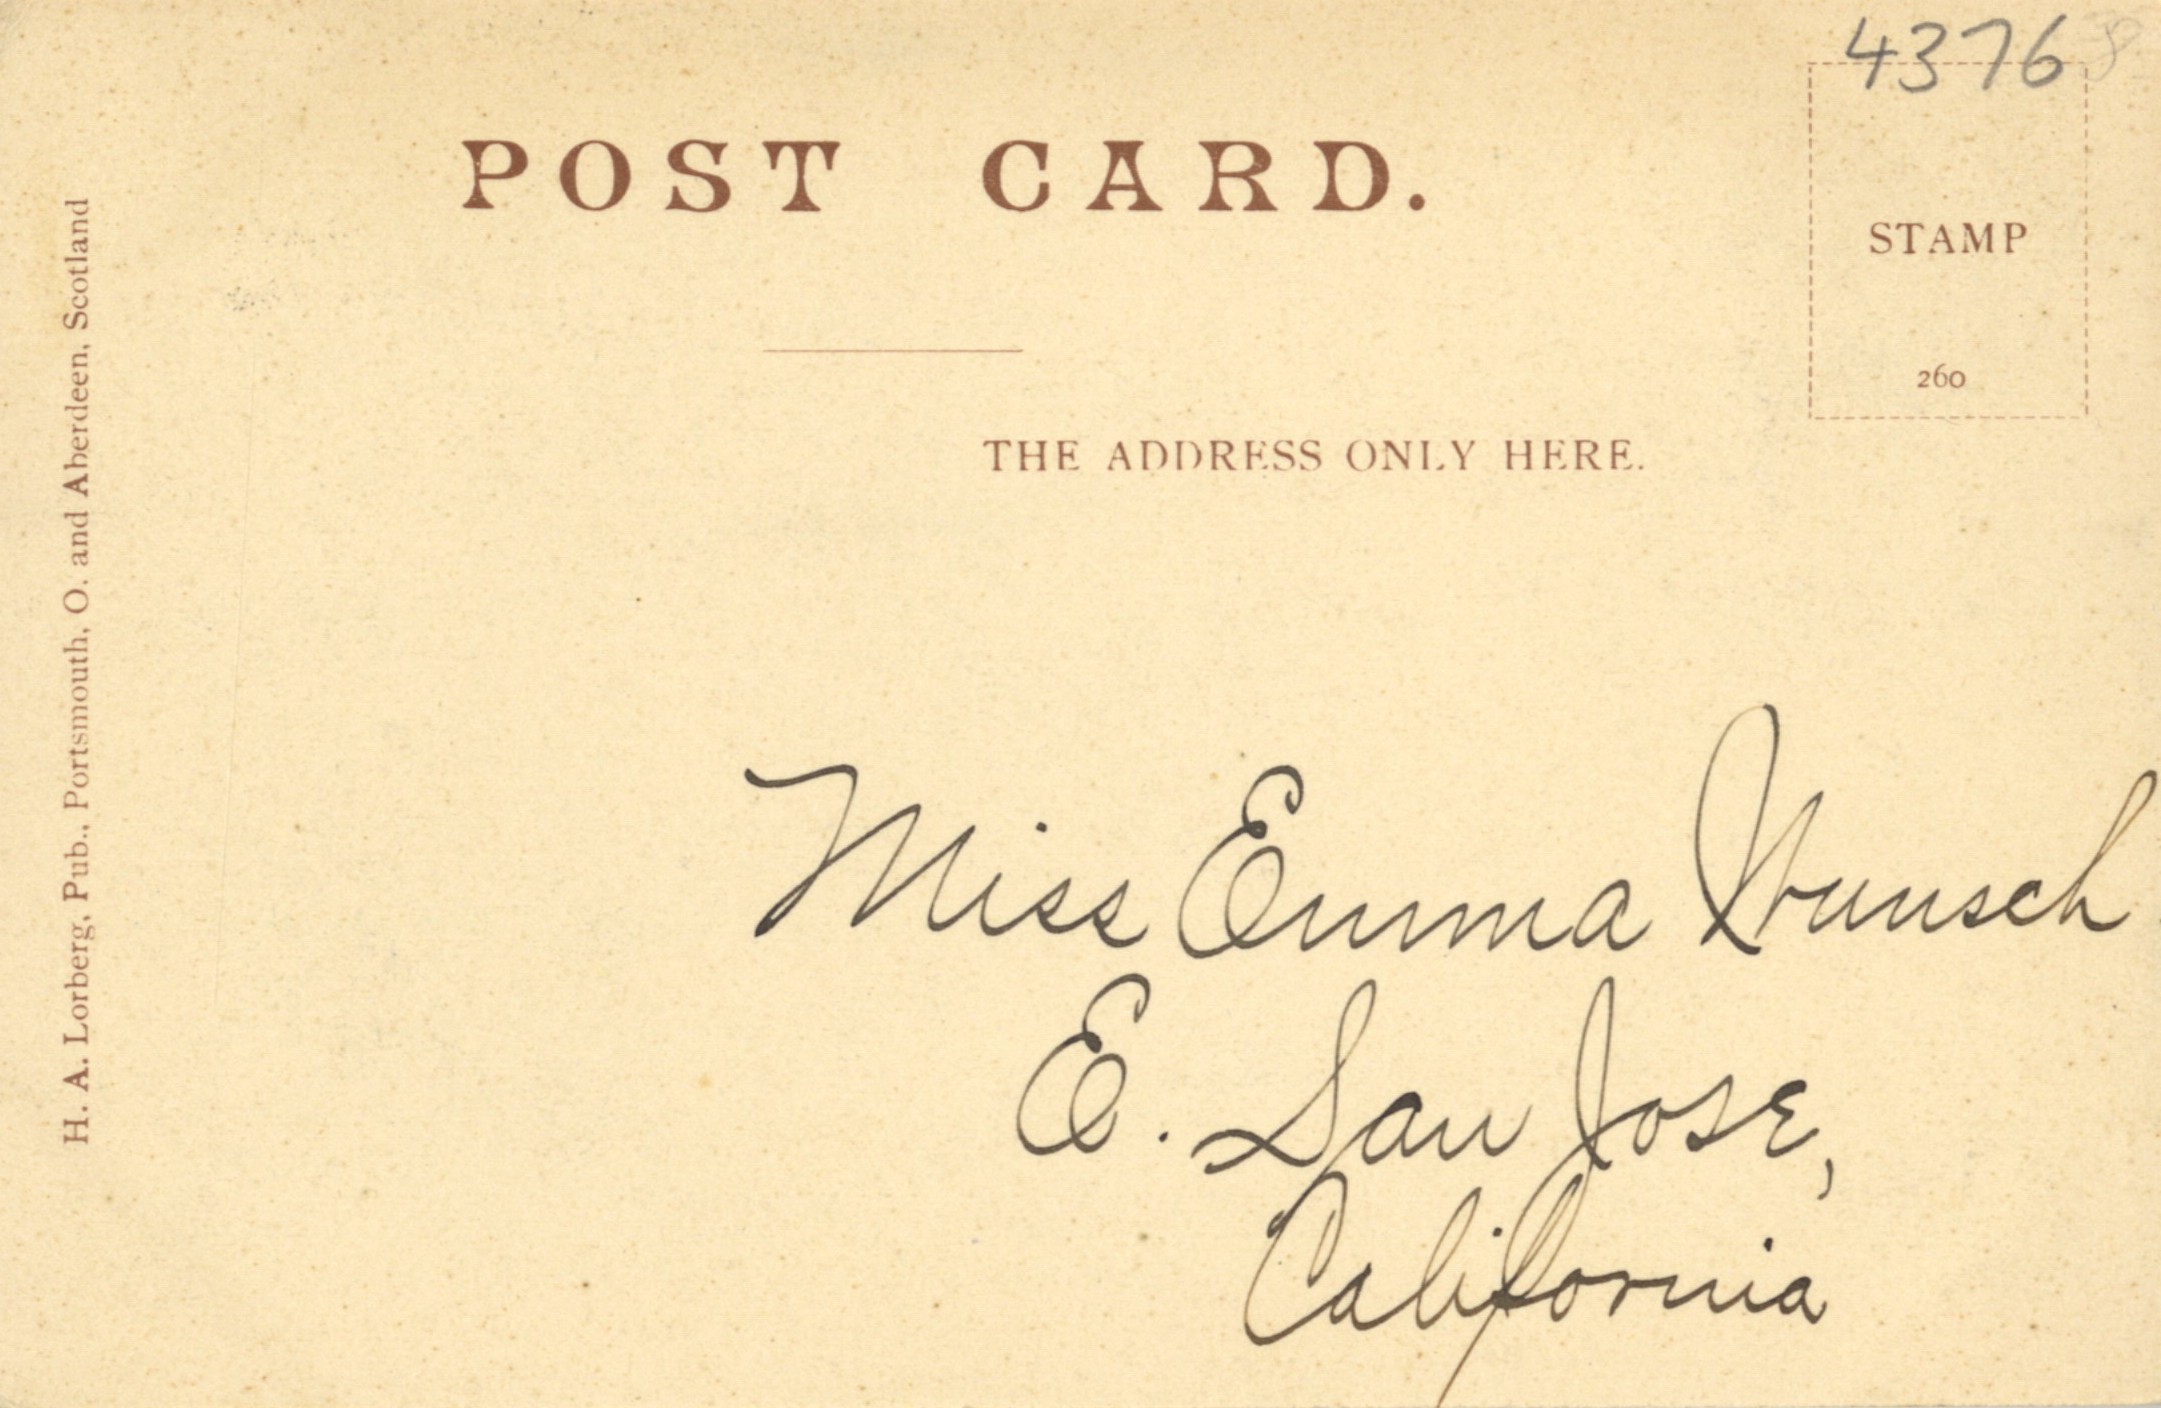 4376
POST CARD.
STAMP
260
THE ADDRESS ONLY HERE.
H. A. Lorberg, Pub., Portsmouth, O. and Aberdeen, Scotland
Miss Emma Wunsch
E. San Jose,
California